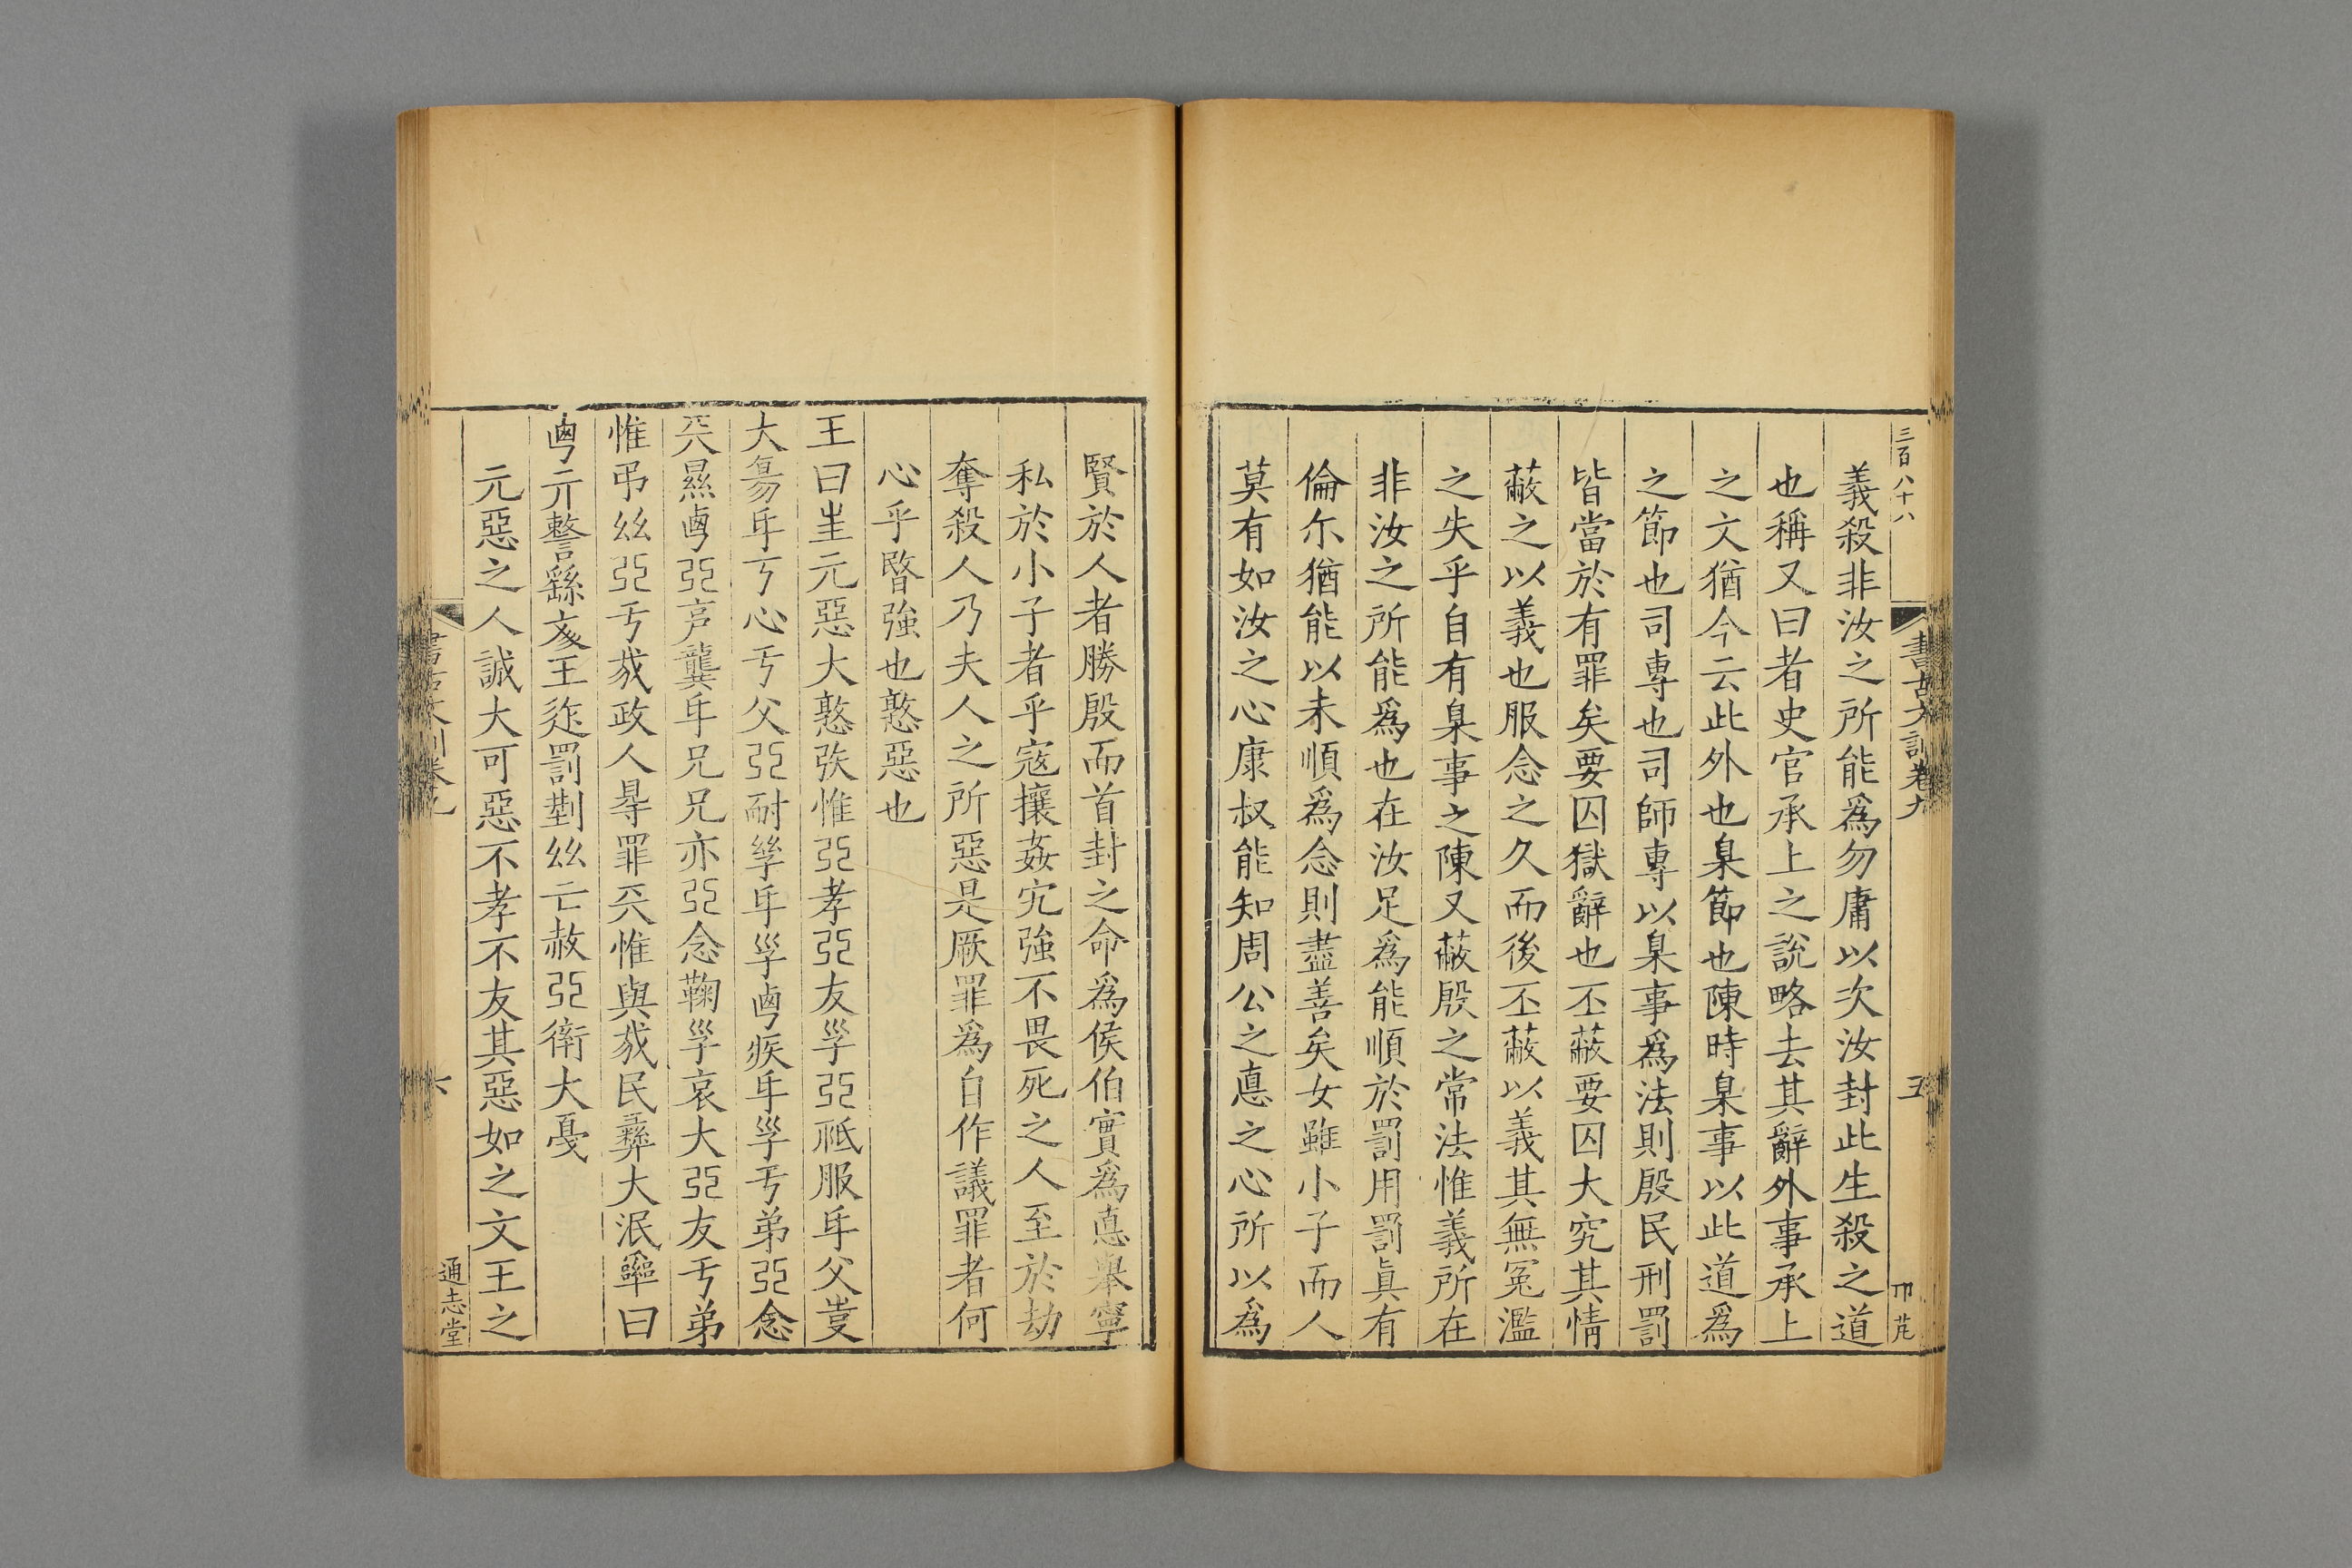 三百八十八
書古文訓卷九
五
義殺非汝之所能爲勿庸以次汝封此生殺之道
也稱又曰者史官承上之說略去其辭外事承上
之文猶今云此外也臬節也陳時臬事以此道爲
之節也司專也司師專以臬事爲法則殷民刑罰
皆當於有罪矣要囚獄辭也丕蔽要囚大究其情
蔽之以義也服念之久而後丕蔽以義其無冤濫
之失乎自有臬事之陳又蔽殷之常法惟義所在
非汝之所能爲也在汝足爲能順於罰用罰眞有
倫尓猶能以未順爲念則盡善矣女雖小子而人
莫有如汝之心康叔能知周公之悳之心所以爲
賢於人者勝殷而首封之命爲侯伯實爲悳舉寧
私於小子者乎寇攘姦宄強不畏死之人至於劫
奪殺人乃夫人之所惡是厥罪爲自作議罪者何
心乎暋強也憝惡也
王曰𡉚元惡大憝㢮惟亞孝亞友𡥉亞祗服𠂆父
大𠃓𠂆丂心亏父亞耐𡥉𠂆𡥉𠧟疾𠂆𡥉亏弟亞念
兲㬎𠧟亞㐭龔𠂆兄兄亦亞念鞠𡥉哀大亞友亏弟
惟弔𢆶亞亏𢦓政人㝵罪兲惟與𢦓民彝大泯𤔔曰
𠧟亓𧫷繇𡕥王迮罰㓝𢆶亡赦亞䘗大戞
元惡之人誠大可惡不孝不友其惡如之文王之
書古文訓卷九
六
通志堂